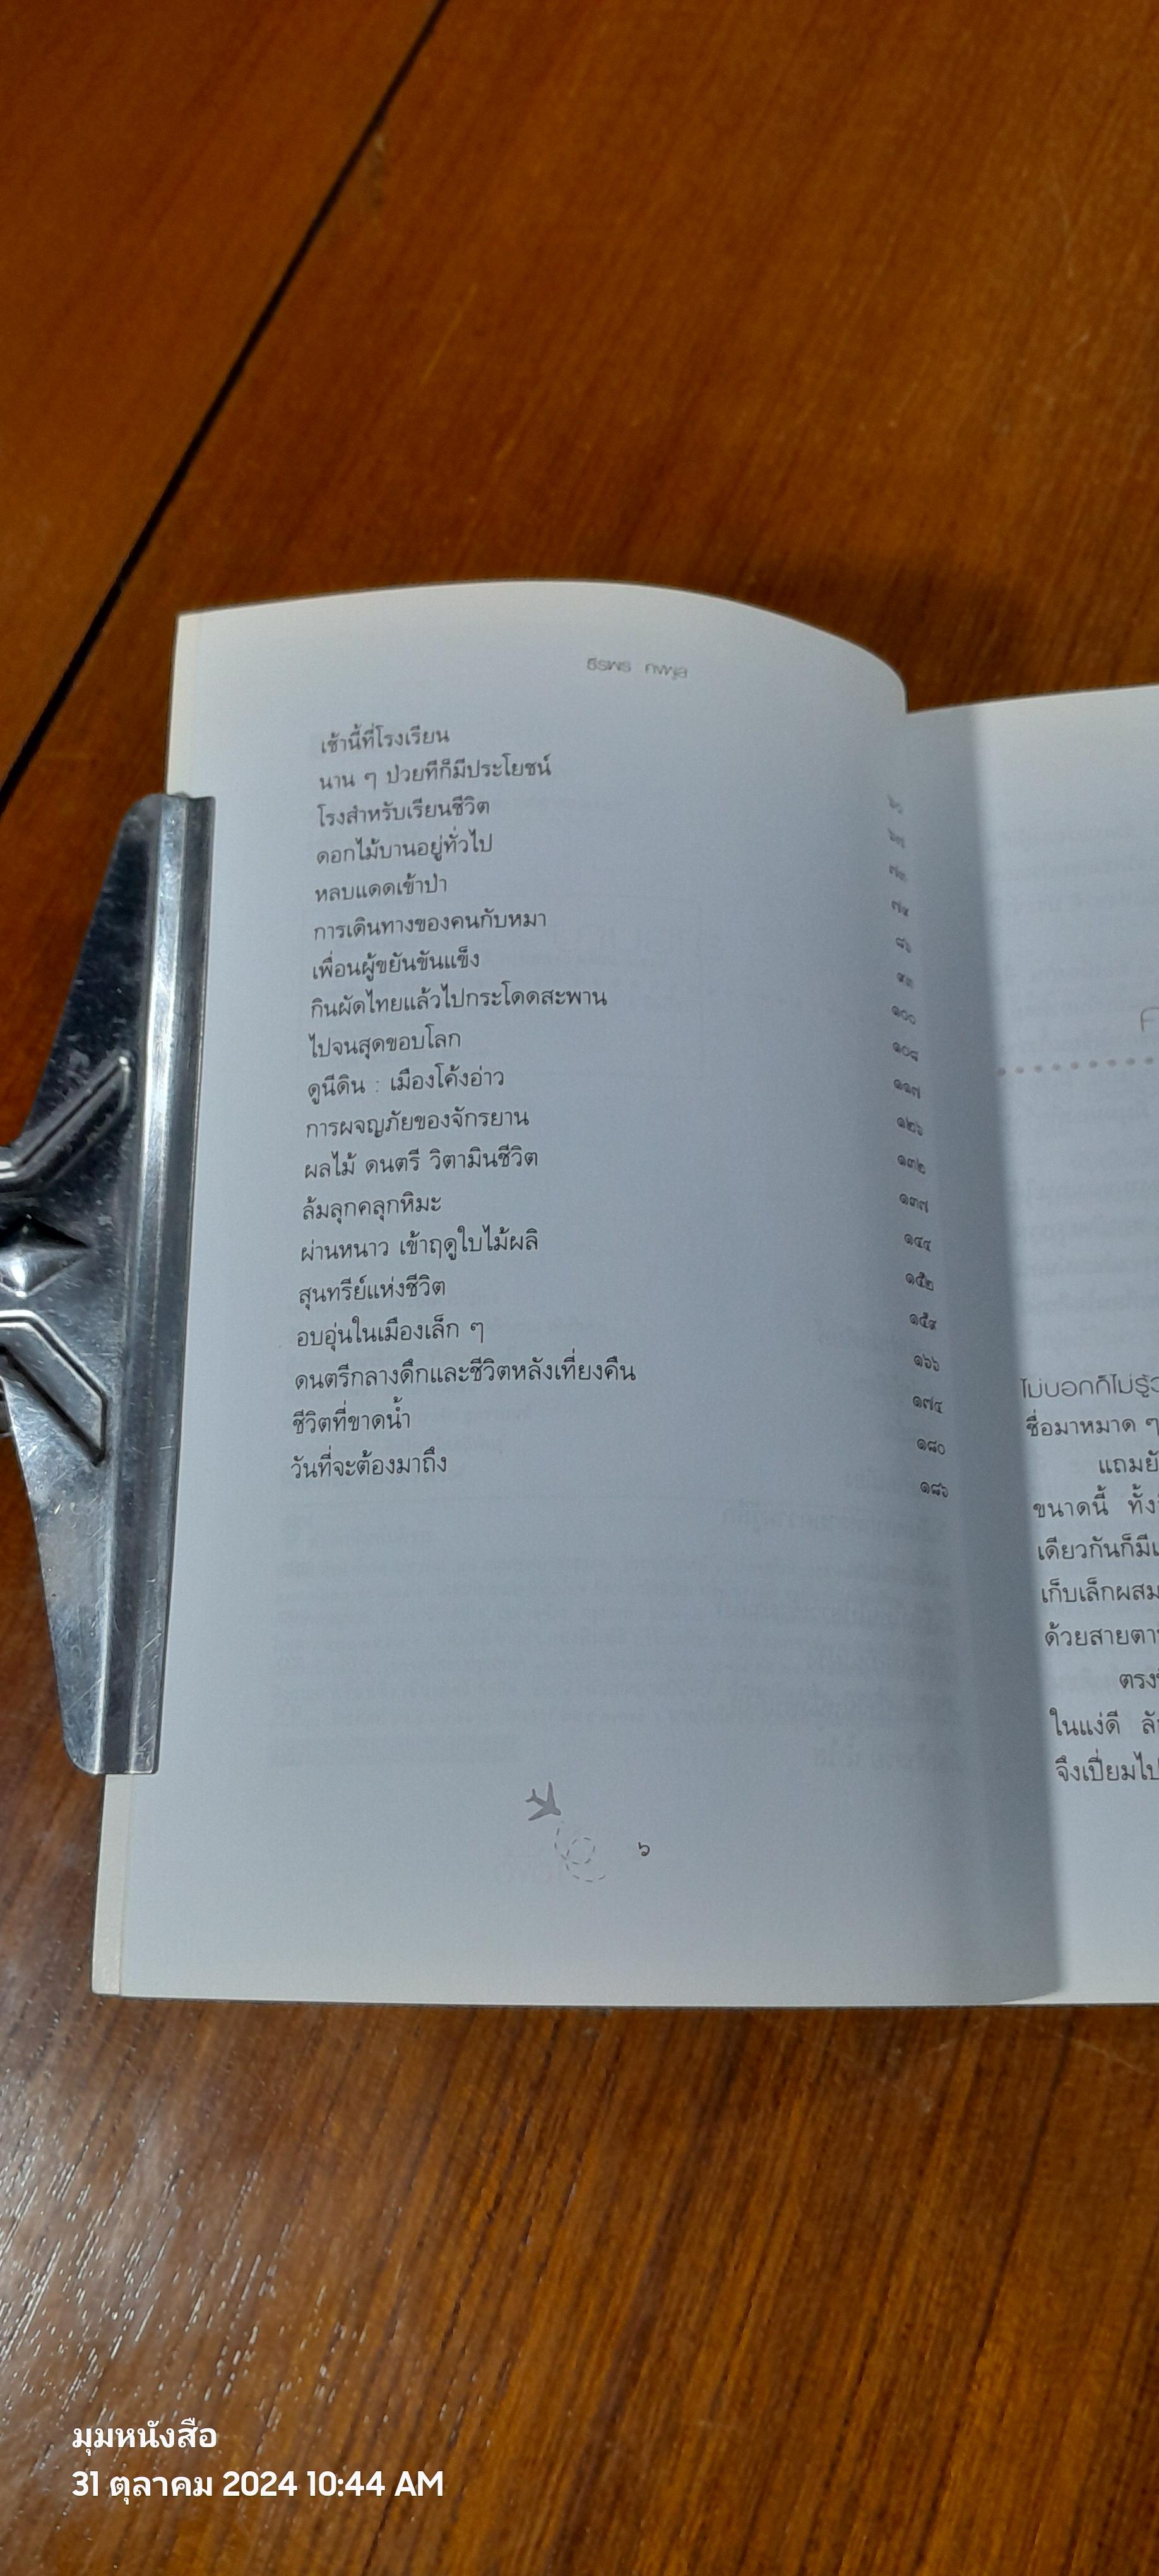 ธีรพร
เช้านี้ที่โรงเรียน
นาน ๆ ป่วยทีก็มีประโยชน์
โรงสำหรับเรียนชีวิต
ดอกไม้บานอยู่ทั่วไป
หลบแดดเข้าป่า ๘๖
การเดินทางของคนกับหมา ๙๓
เพื่อนผู้ขยันขันแข็ง ๑๐๐
กินผัดไทยแล้วไปกระโดดสะพาน ๑๐๘
ไปจนสุดขอบโลก ๑๑๗
ดูนีดิน : เมืองโค้งอ่าว ๑๒๖
การผจญภัยของจักรยาน ๑๓๒
ผลไม้ ดนตรี วิตามินชีวิต ๑๓๗
ล้มลุกคลุกหิมะ ๑๔๔
ผ่านหนาว เข้าฤดูใบไม้ผลิ ๑๕๒
สุนทรีย์แห่งชีวิต ๑๕๙
อบอุ่นในเมืองเล็ก ๆ ๑๖๖
ดนตรีกลางดึกและชีวิตหลังเที่ยงคืน ๑๗๔
ชีวิตที่ขาดน้ำ ๑๘๐
วันที่จะต้องมาถึง ๑๘๖
๖
ไม่บอกก็ไม่รู้ว
ชื่อมาหมาด ๆ
แถมยั
ขนาดนี้ ทั้ง
เดียวกันก็มี
เก็บเล็กผสม
ด้วยสายตา
ตรง
ในแง่ดี
จึงเปี่ยมไป
มุมหนังสือ
31 ตุลาคม 2024 10:44 AM